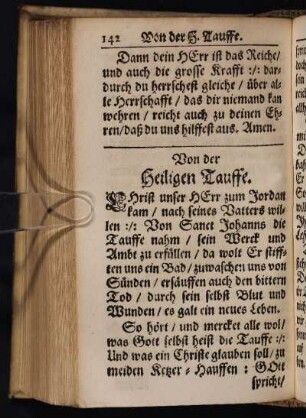 142 Von der H. Tauffe.
Dann dein HErr ist das Reiche/
und auch die grosse Krafft :/: dar-
durch du herrschest gleiche / über al-
le Herrschafft / das dir niemand kan
wehren / reicht auch zu deinen Eh-
ren/ daß du uns hilffest aus. Amen.
Von der
Heiligen Tauffe.
CHrist unser HErr zum Jordan
kam / nach seines Vatters wil-
len :/: Von Sanct Johanns die
Tauffe nahm / sein Werck und
Ambt zu erfüllen / da wolt Er stiff-
ten uns ein Bad/ zuwaschen uns von
Sünden / ersäuffen auch den bittern
Tod / durch sein selbst Blut und
Wunden / es galt ein neues Leben.
So hört / und mercket alle wol/
was Gott selbst heist die Tauffe :/:
Und was ein Christe glauben soll / zu
meiden Ketzer-Hauffen : GOtt
spricht/